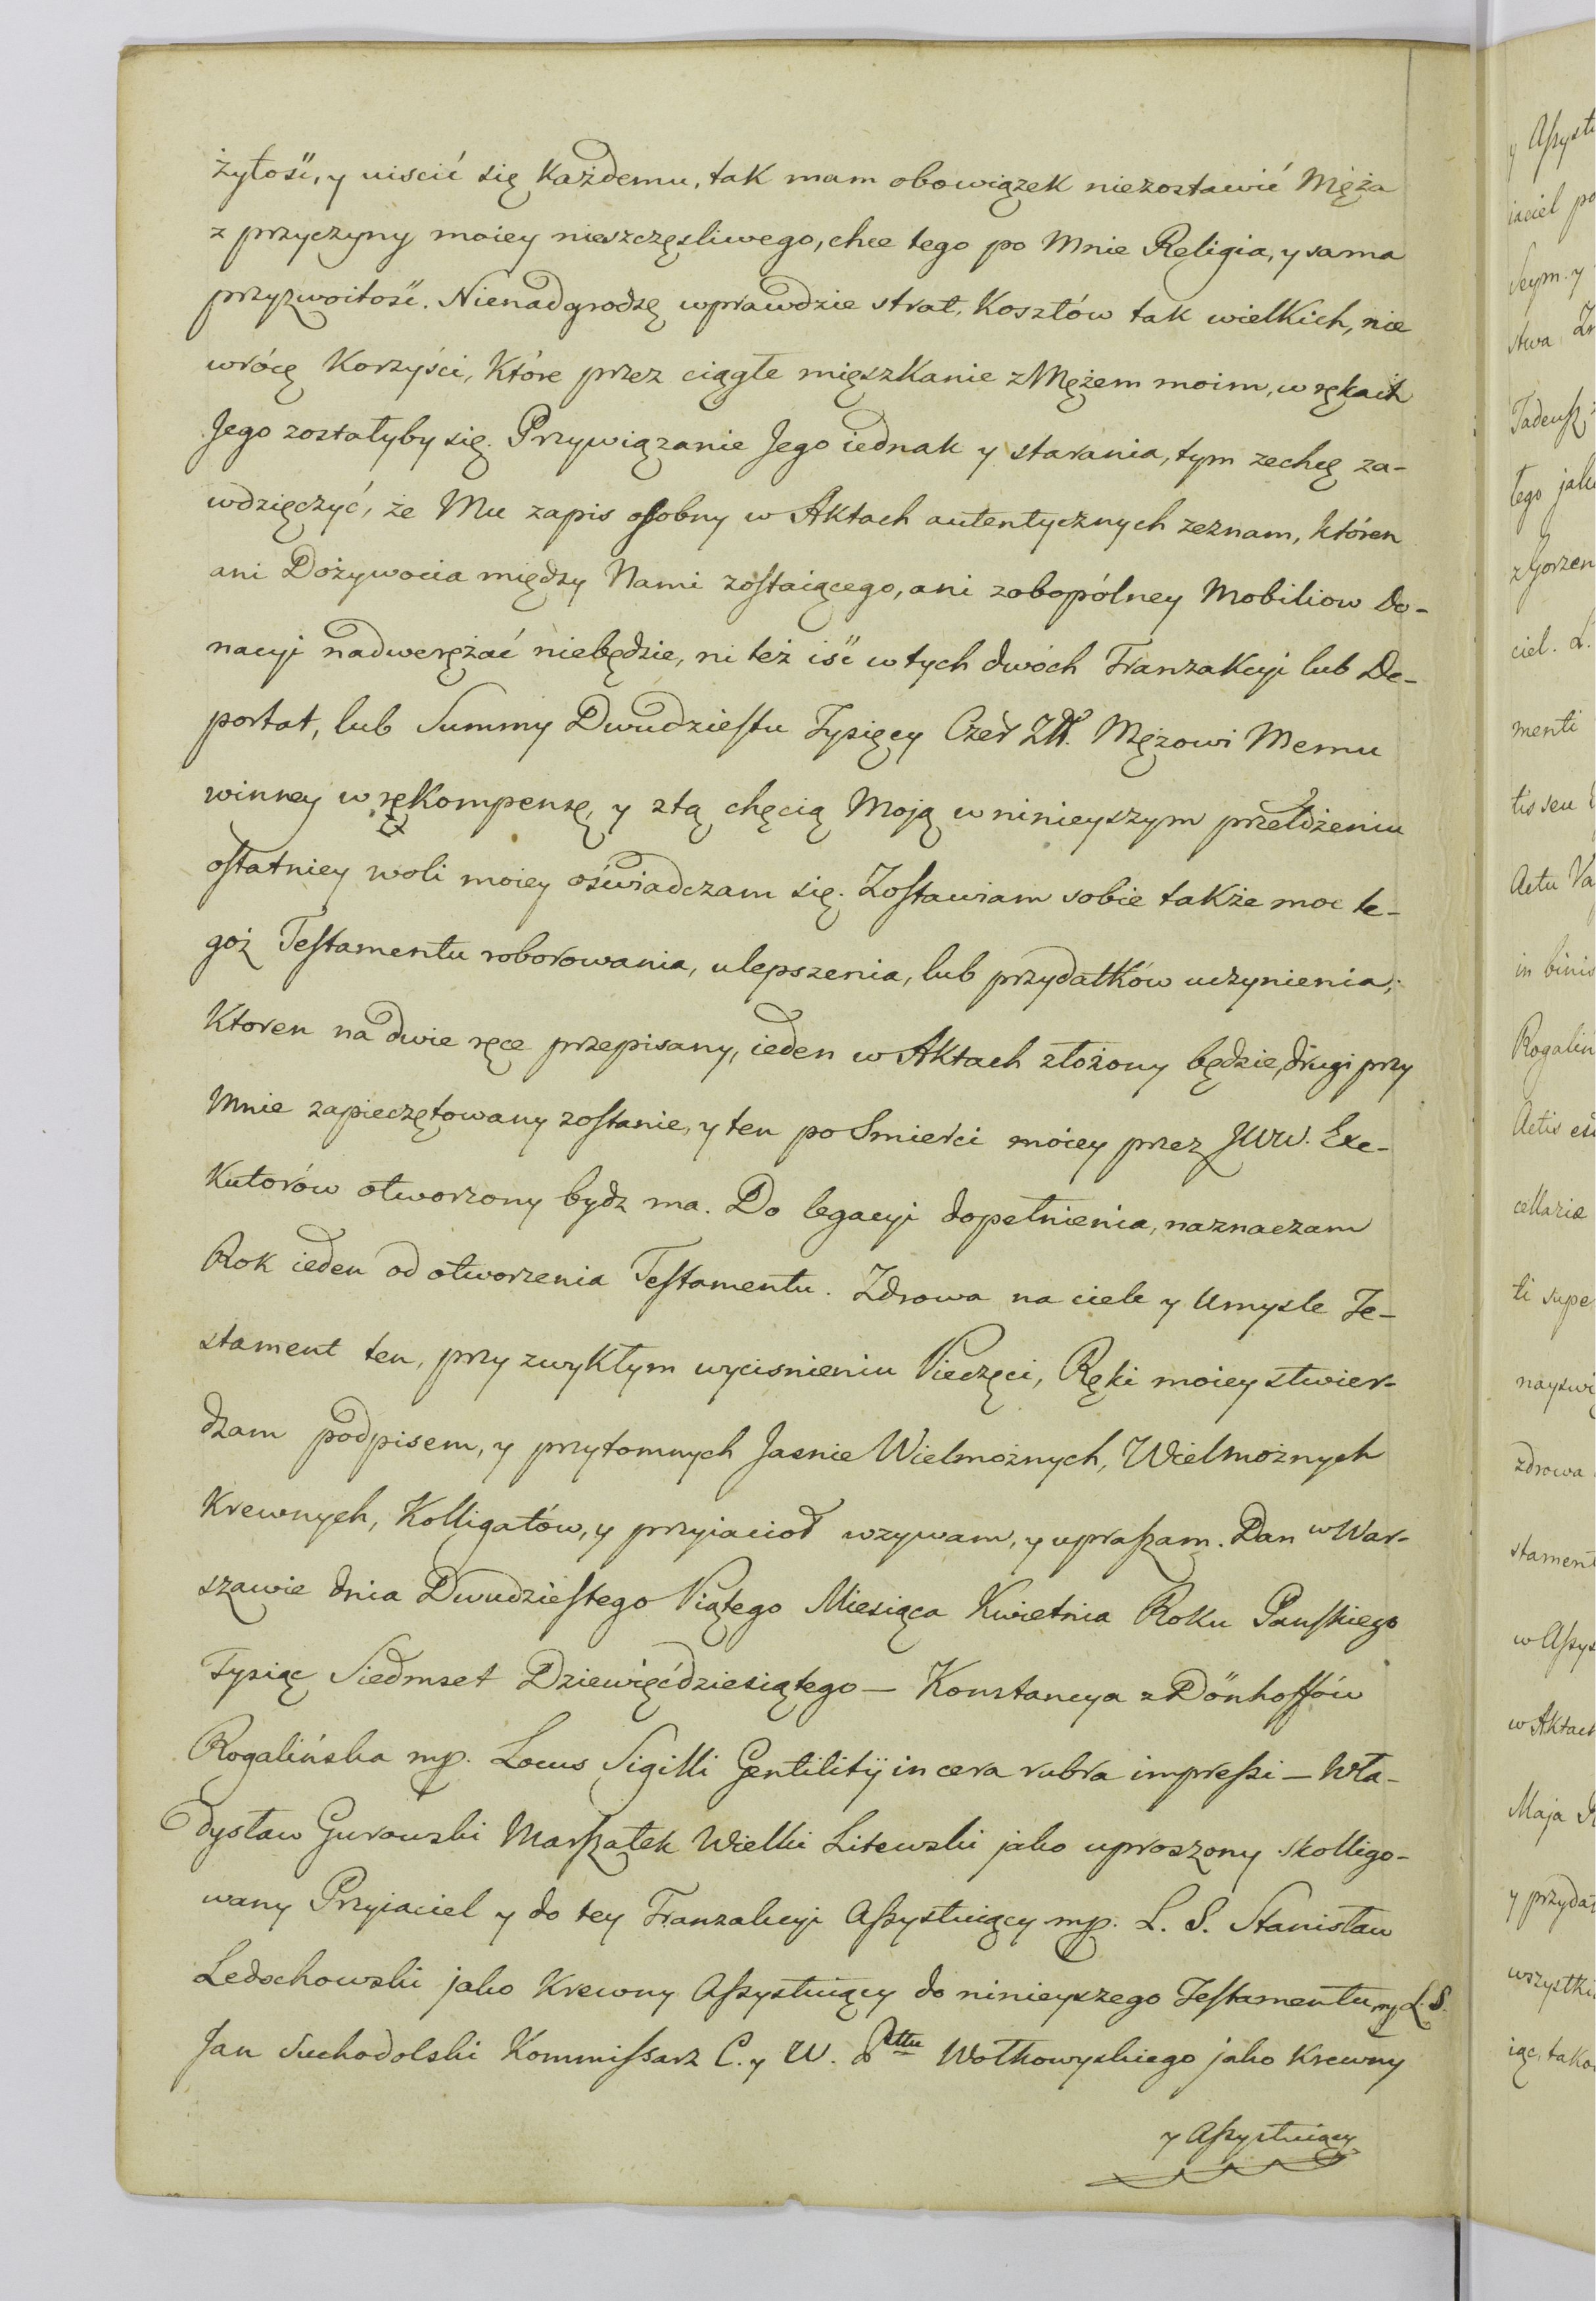 żyłość, y uiscić się każdemu, tak mam obowiązek niezostawić Męża
z przyczyny moiey nieszczęsliwego, chce tego po Mnie Religia, y sama
przyzwoitość. Nienadgrodzę wprawdzie strat, Kosztów tak wielkich, nie
wrócę Korzyści, Które przez ciągłe mięszkanie z Mężem moim, w rękach
Jego zostałyby się. Przywiązanie Jego iednak y starania, tym zechcę za-
wdzięczyć, że Mu zapis osobny w Aktach autentycznych zeznam, któren
ani Dożywocia między Nami zostaiącego, ani zobopólney Mobiliow Do-
nacyi nadwerężać niebędzie, ni też iść w tych dwóch Tranzakcyi lub De-
portat, lub Summy Dwudziestu Tysięcy Czer Złł. Mężowi Memu
winney w rękompensę, y z tą chęcią Moją w ninieyszym przełożeniu
ostatniey woli moiey oświadczam się. Zostawiam sobie także moc te-
goż Testamentu roborowania, ulepszenia, lub przydatków uczynienia;
Ktoren na dwie ręce przepisany, ieden w Aktach złożony będzie, drugi przy
Mnie zapieczętowany zostanie, y ten po Smierci moiey przez JWW. Exe-
Kutorów otworzony bydz ma. Do legacyi dopełnienia, naznaczam
Rok ieden od otworzenia Testamentu. Zdrowa na ciele y Umysle Te-
stament ten, przy zwykłym wycisnieniu Pieczęci, Ręki moiey stwier-
dzam podpisem, y przytomnych Jasnie Wielmożnych, Wielmożnych
Krewnych, Kolligatów, y przyiacioł wzywam, y upraszam. Dan w War-
szawie dnia Dwudziestego Piątego Miesiąca Kwietnia Roku Panskiego
Tysiąc Siedmset Dziewięćdziesiątego — Konstancya z Dönhoffów
Rogalińska mp. Locus Sigilli Gentilitij in cera rubra impressi — Wła-
dysław Gurowski Marszałek Wielki Litewski jako uproszony skolligo-
wany Przyiaciel y do tey Tranzakcyi Assystuiący mp. L. S. Stanisław
Ledochowski jako Krewny Assystuiący do ninieyszego Testamentu mp. L. S.
Jan Suchodolski Kommissarz C. y W. Pttu Wołkowyskiego jako Krewny
y Assystuiący